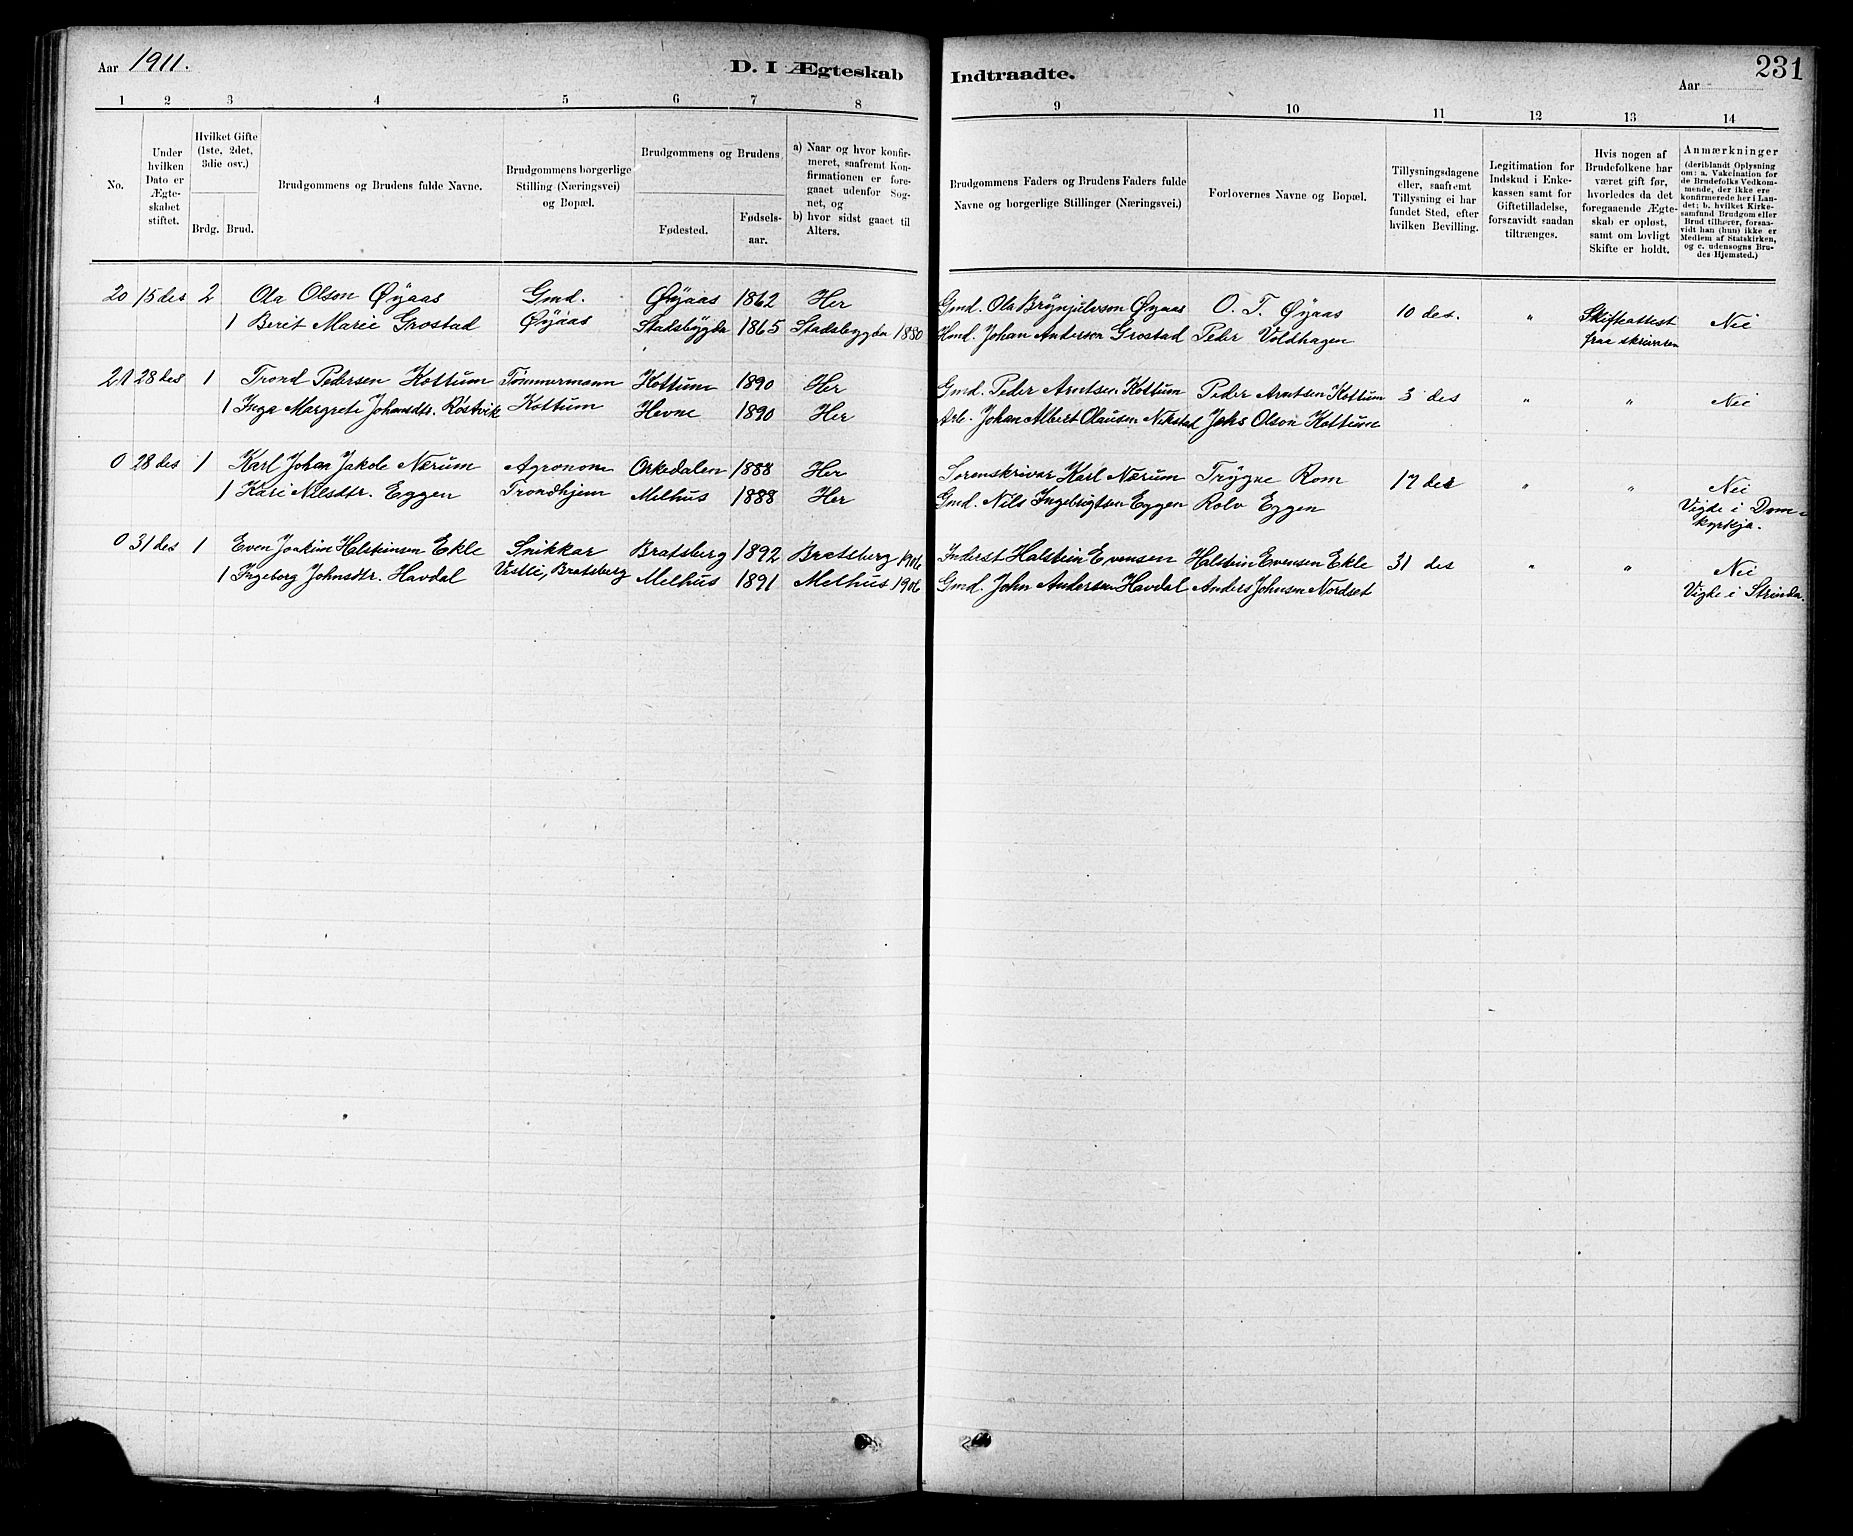 Aar 1911.
D. I Ægteskab
Indtraadte.
231
Aar
1 2 3 4 5 6 7 8 9 10 11 12 13 14
No.
Under hvilken Dato er Ægte-skabet stiftet.
Hvilket Gifte (1ste, 2det, 3die osv.)
Brdg. Brud.
Brudgommens og Brudens fulde Navne.
Brudgommens borgerlige Stilling (Næringsvei) og Bopæl.
Brudgommens og Brudens
Fødested.
Fødsels-aar.
a) Naar og hvor konfir-meret, saafremt Kon-firmationen er fore-gaaet udenfor Sog-net, og
b) hvor sidst gaaet til Alters.
Brudgommens Faders og Brudens Faders fulde Navne og borgerlige Stillinger (Næringsvei.)
Forlovernes Navne og Bopæl.
Tillysningsdagene eller, saafremt Tillysning ei har fundet Sted, efter hvilken Bevilling.
Legitimation for Indskud i Enke-kassen samt for Giftetilladelse, forsaavidt saadan tiltrænges.
Hvis nogen af Brudefolkene har været gift før, hvorledes da det foregaaende Ægte-skab er opløst, samt om lovligt Skifte er holdt.
Anmærkninger (deriblandt Oplysning om: a. Vakcination for de Brudefolks Vedkom-mende, der ikke ere konfirmerede her i Lan-det; b. hvilket Kirke-samfund Brudgom eller Brud tilhører, forsaa-vidt han (hun) ikke er Medlem af Statskirken, og c. udensogns Bru-des Hjemsted.)
20 15 des 2 Ola Olson Øyaas Gmd. Øyaas 1862 Her Gmd. Ola Brynjulvson Øyaas O. T. Øyaas 10 des. " Skifteattest Nei
1 Berit Marie Grostad Øyaas Stadsbygda 1865 Stadsbygda 1880 Hmd. Johan Anderson Grostad Peder Voldhagen fraa skrivaren
21 28 des 1 Trond Pedersen Kottum Tømmermann Kottum 1890 Her Gmd. Peder Arntsen Kottum Peder Arntsen Kottum 3 des " " Nei
1 Inga Margrete Johansdtr. Røstvik Kottum Hevne 1890 Her Arb. Johan Albert Olausen Johs Olson Kottum
0 28 des 1 Karl Johan Jakob Nærum Agronom Orkedalen 1888 Her Sorenskrivar Karl Nærum Trygve Rom 17 des " " Nei
1 Kari Nilsdtr. Eggen Trondhjem Melhus 1888 Her Gmd. Nils Ingebrigtsen Eggen Rolv Eggen Vigde i Dom-
kyrkja.
0 31 des 1 Even Joakim Halsteinsen Ekle Snikkar Bratsberg 1892 Bratsberg 1906 Inderst Halstein Evensen Halstein Evensen Ekle 31 des " " Nei
1 Ingeborg Johnsdtr. Havdal Vestli, Bratsberg Melhus 1891 Melhus 1906 Gmd. John Andersen Havdal Anders Johnsen Nordset Vigde i Strinda.